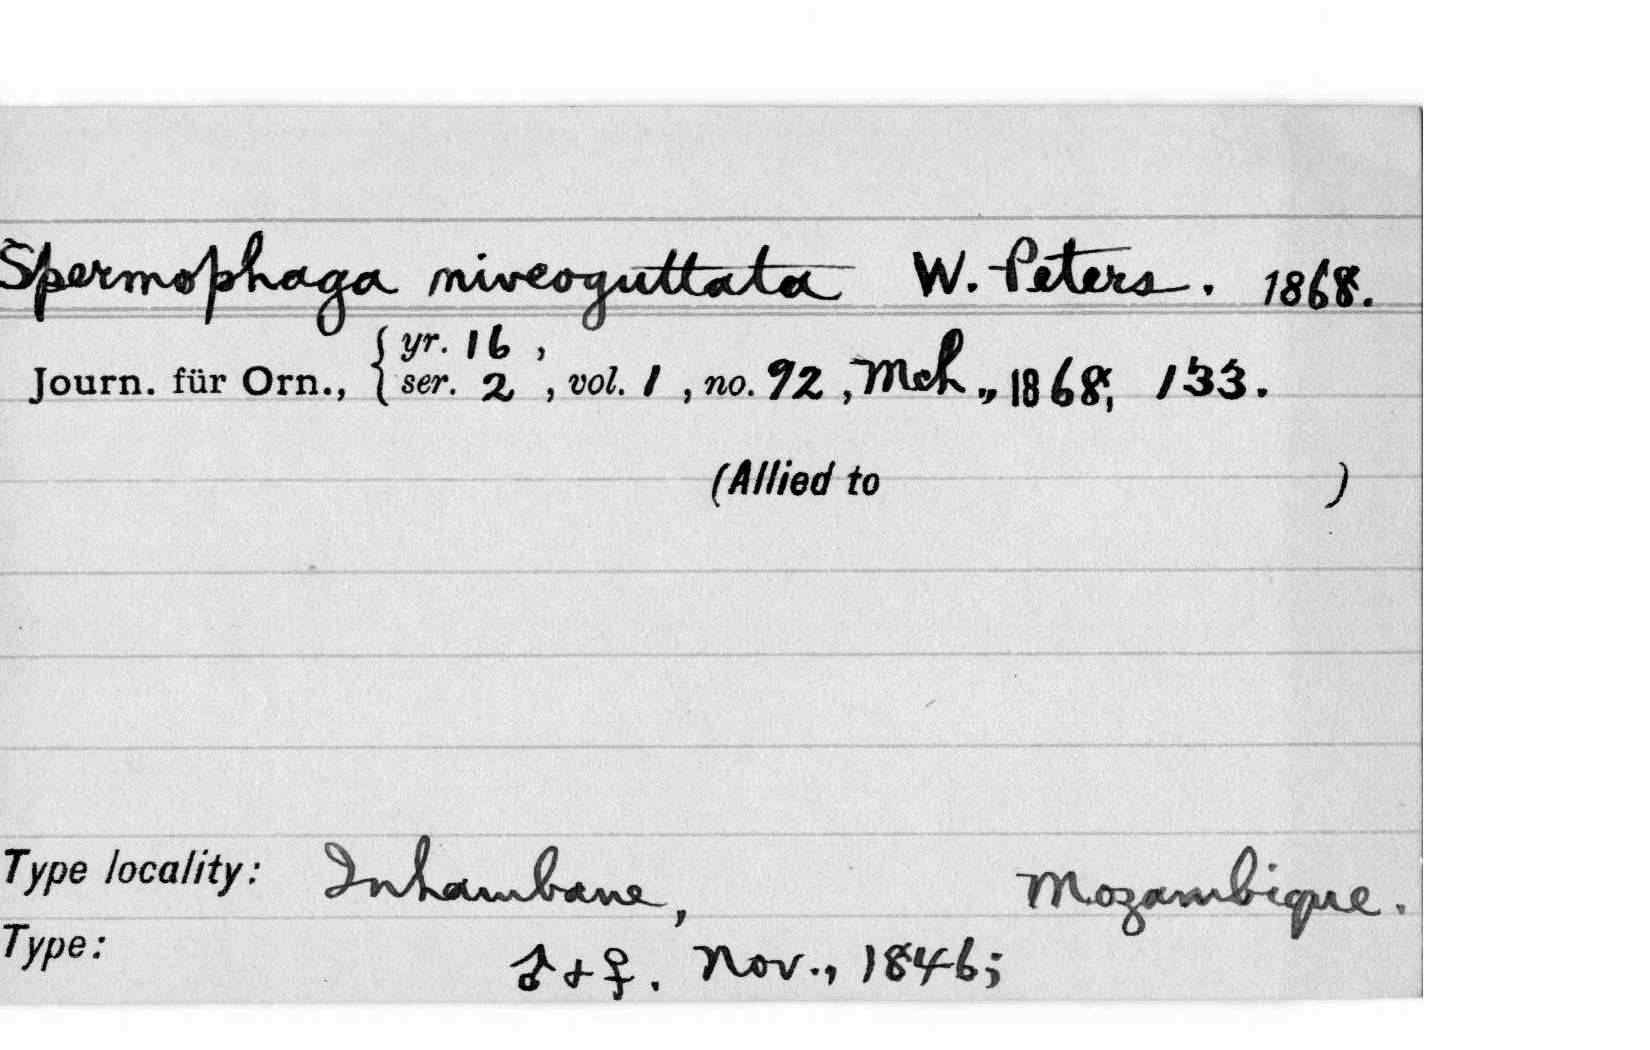 Spermophaga niveoguttata W. Peters. 1868.
Journ. für Orn., { yr. 16 ,
ser. 2 , vol. 1 , no. 92 , Mch ., 1868; 133.
(Allied to )
Type locality: Inhambane, Mozambique.
Type: ♂ + ♀. Nov., 1846;